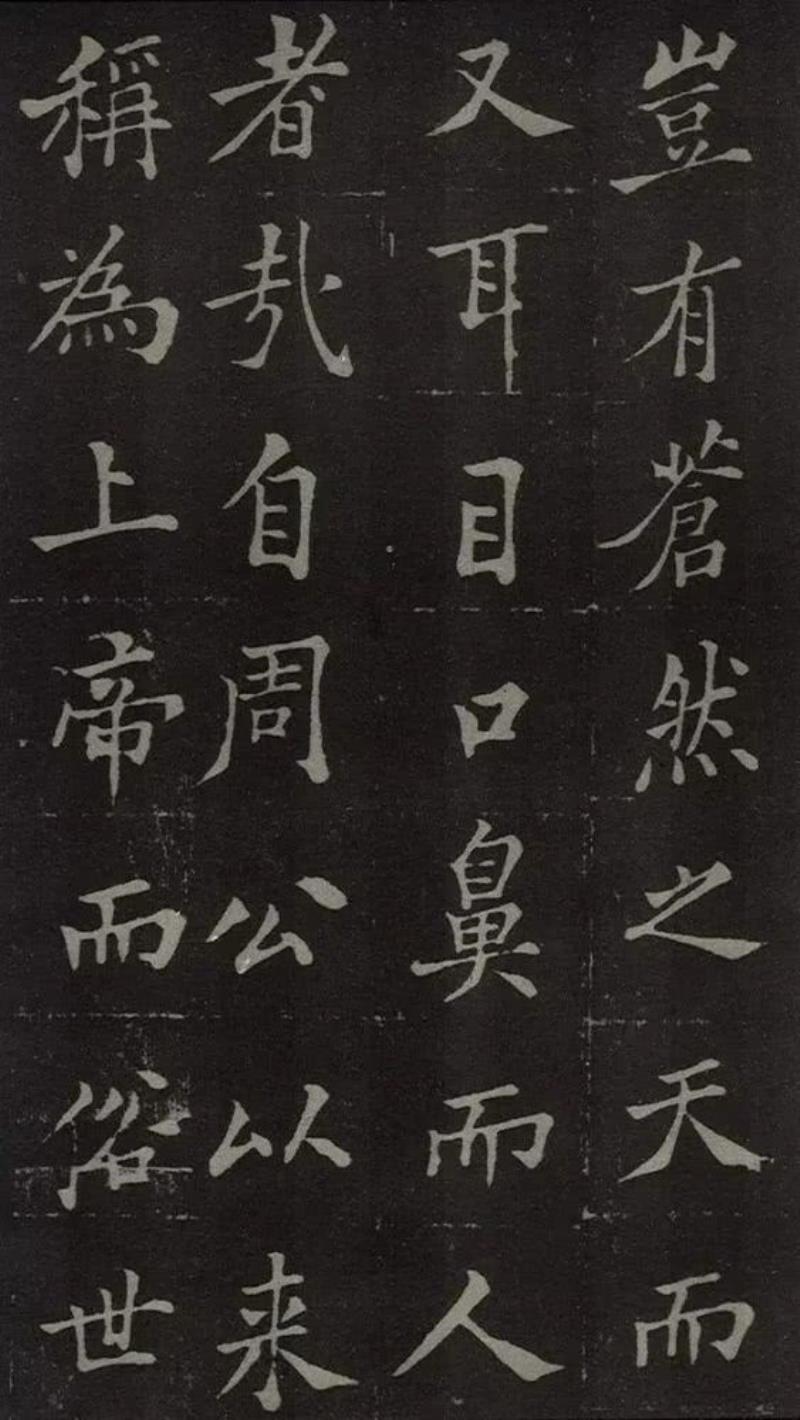 豈有蒼然之天而
又耳目口鼻而人
者哉自周公以来
稱為上帝而俗世